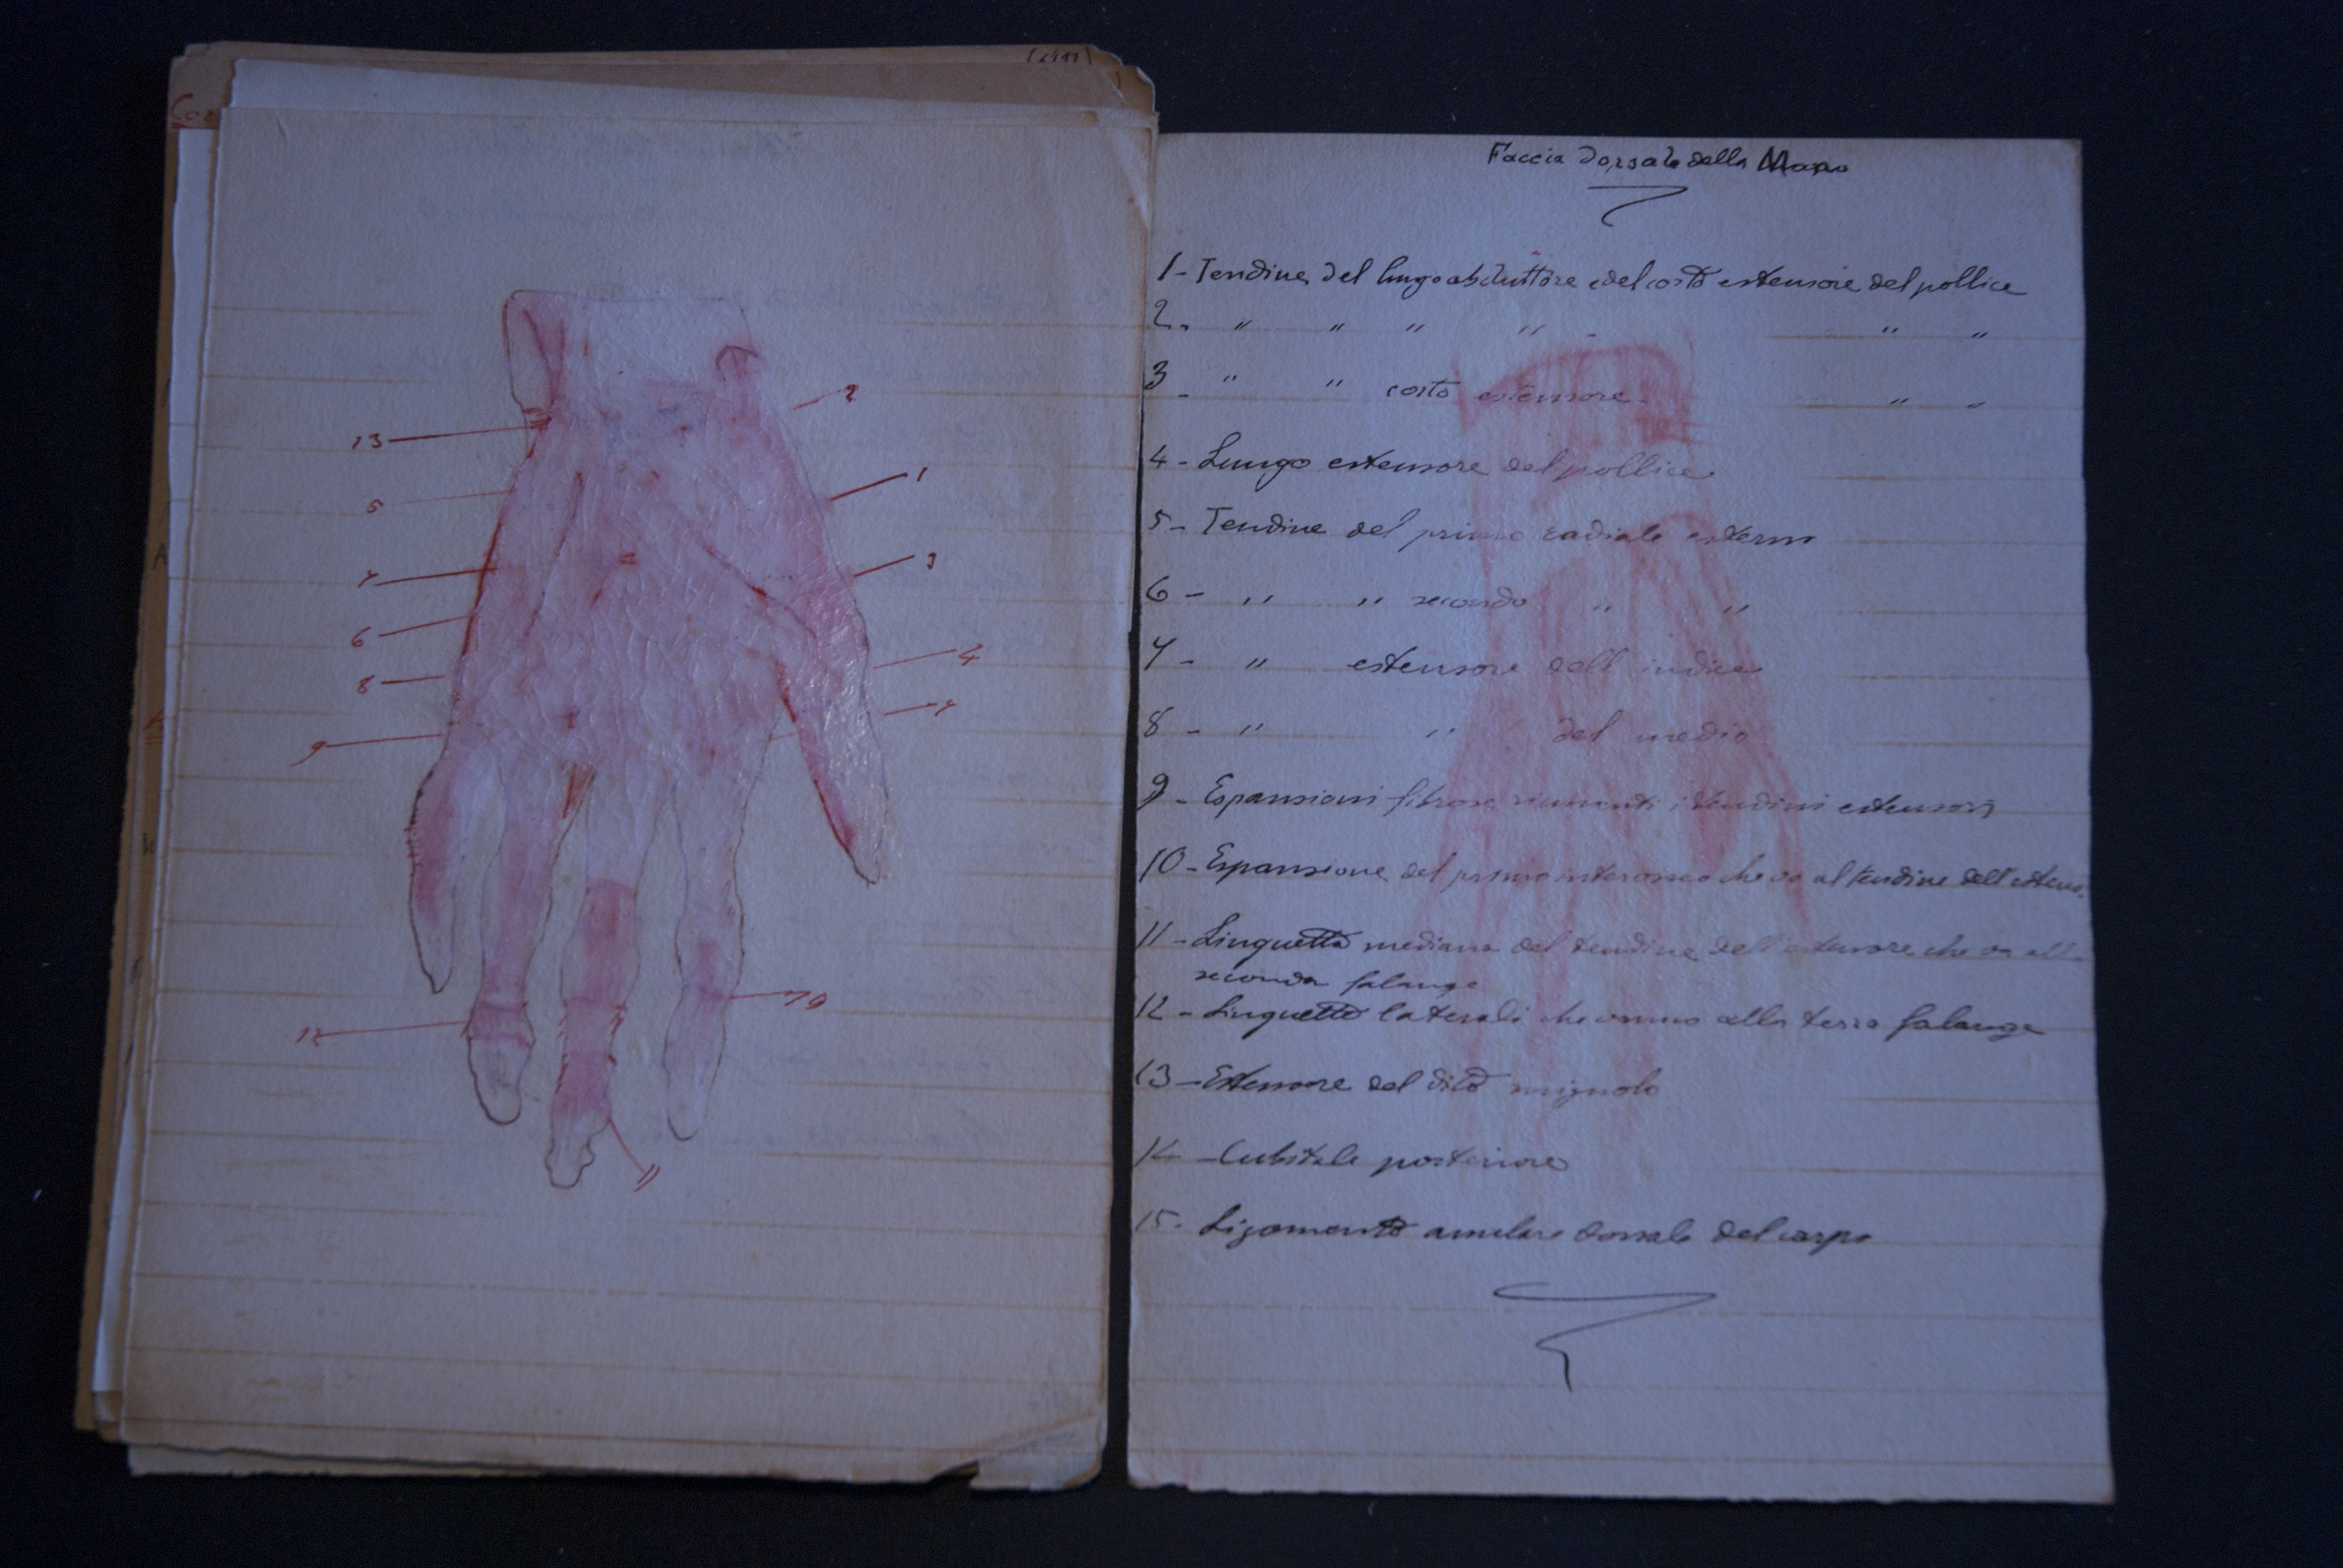 13
5
7
6
8
9
12
2
1
3
4
7
10
11
Faccia dorsale della Mano
1 - Tendine del lungo abduttore e del corto estensore del pollice
2 - " " " " - " "
3 - " " corto estensore - " "
4 - Lungo estensore del pollice
5 - Tendine del primo radiale esterno
6 - " " secondo " "
7 - " estensore dell'indice
8 - " " del medio
9 - Espansioni fibrose i tendini estensori
10 - Espansione del primo interosseo che va al tendine dell'estens.
11 - Linguetta mediana del tendine dell'estensore che va all
seconda falange
12 - Linguette laterali che vanno alla terza falange
13 - Estensore del dito mignolo
14 - Cubitale posteriore
15 - Ligamento anulare dorsale del carpo